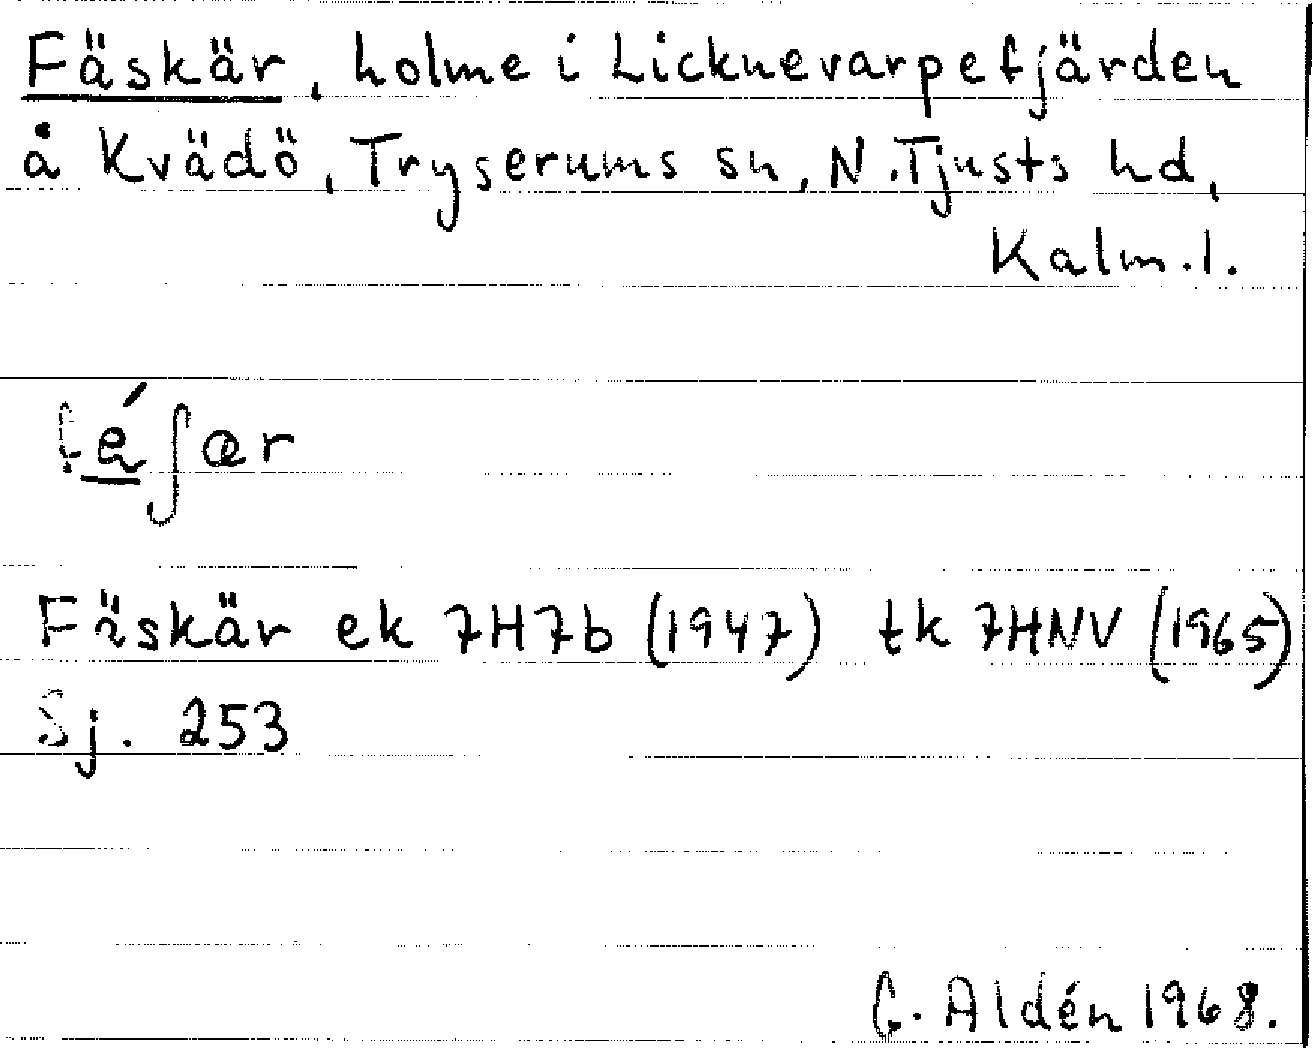 Fäskär, holme i Licknevarpefjärden
å Kvädö, Tryserums sn, N.Tjusts hd,
Kalm.l.
fé̲ʃær
Fäskär ek 7H7b (1947) tk 7HNV (1965)
Sj. 253
G. Aldén 1968.